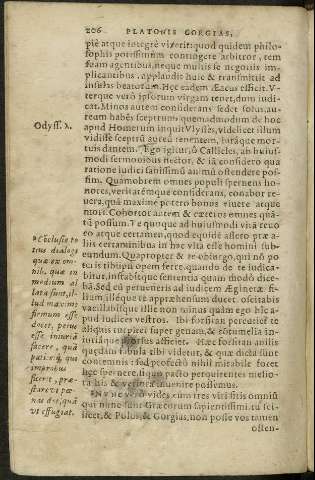 206 PLATONIS GORGIAS,
piè atque integrè vixerit: quod quidem philo-
sophis potissimum contingere arbitror, rem
suam agentibus, neque multis se negotiis im-
plicantibus, applaudit huic & transmittit ad
insulas beatorum. Hęc eadem Æacus efficit. V-
terque verò ipsorum virgam tenet, dum iudi-
cat. Minos autem considerans sedet solus, au-
reum habés sceptrum: quemadmodum de hoc
apud Homerum inquit Vlysses, videlicet illum
vidisse sceptrū aureū tenentem, iuráque mor-
tuis dantem. Ego igitur, ô Callicles, ab huius-
modi sermonibus
Odyss. λ.
ratione iudici sanissimū animū ostendere pos-
sim. Quamobrem omnes populi spernens ho-
nores, veritatémque considerans, conabor re
uera, quā maximè potero bonus viuere atque
mori. Cohortor autem & cæteros omnes quā-
tū possum. Te quoque ad huiusmodi vitā reuo
co atque certamen, quod equidē assero præ a-
liis certaminibus in hac vita esse homini sub-
eundum. Quapropter & te obiurgo, qui nō po
teris tibi ipsi opem ferre, quando de te iudica-
bitur,
bā. Sed cū perueneris ad iudicem Æginetæ fi-
lium, illéque te apprehensum ducet, oscitabis
vacillabisque illic non minus quàm ego hîc a-
pud iudices vestros. Ibi forsitan percutiet te
aliquis turpiter super genam, & cōtumelia
afficiet. Hæc forsitan anilis
quædam fabula tibi videtur, & quæ dicta sunt
contemnis: sed profectò nihil mirabile foret
hęc spernere, si quo pacto perquirentes melio-
ra his & veriora inuenire possemus.
NVNC vides, cum tres viri sitis omniū
qui nunc sunt Græcorum sapientissimi, tu sci-
licet, & Polus, & Gorgias, non posse vos tamen
osten-
Cōclusio to
tius dialogi
quæ ex om-
nib. quæ in
medium al
lata sunt, il-
lud maximè
firmum esse
docet, peius
esse iniuriā
facere, quā
pati.
improbus
fuerit, præ-
stare vt pœ-
nas det, quā
vt effugiat.